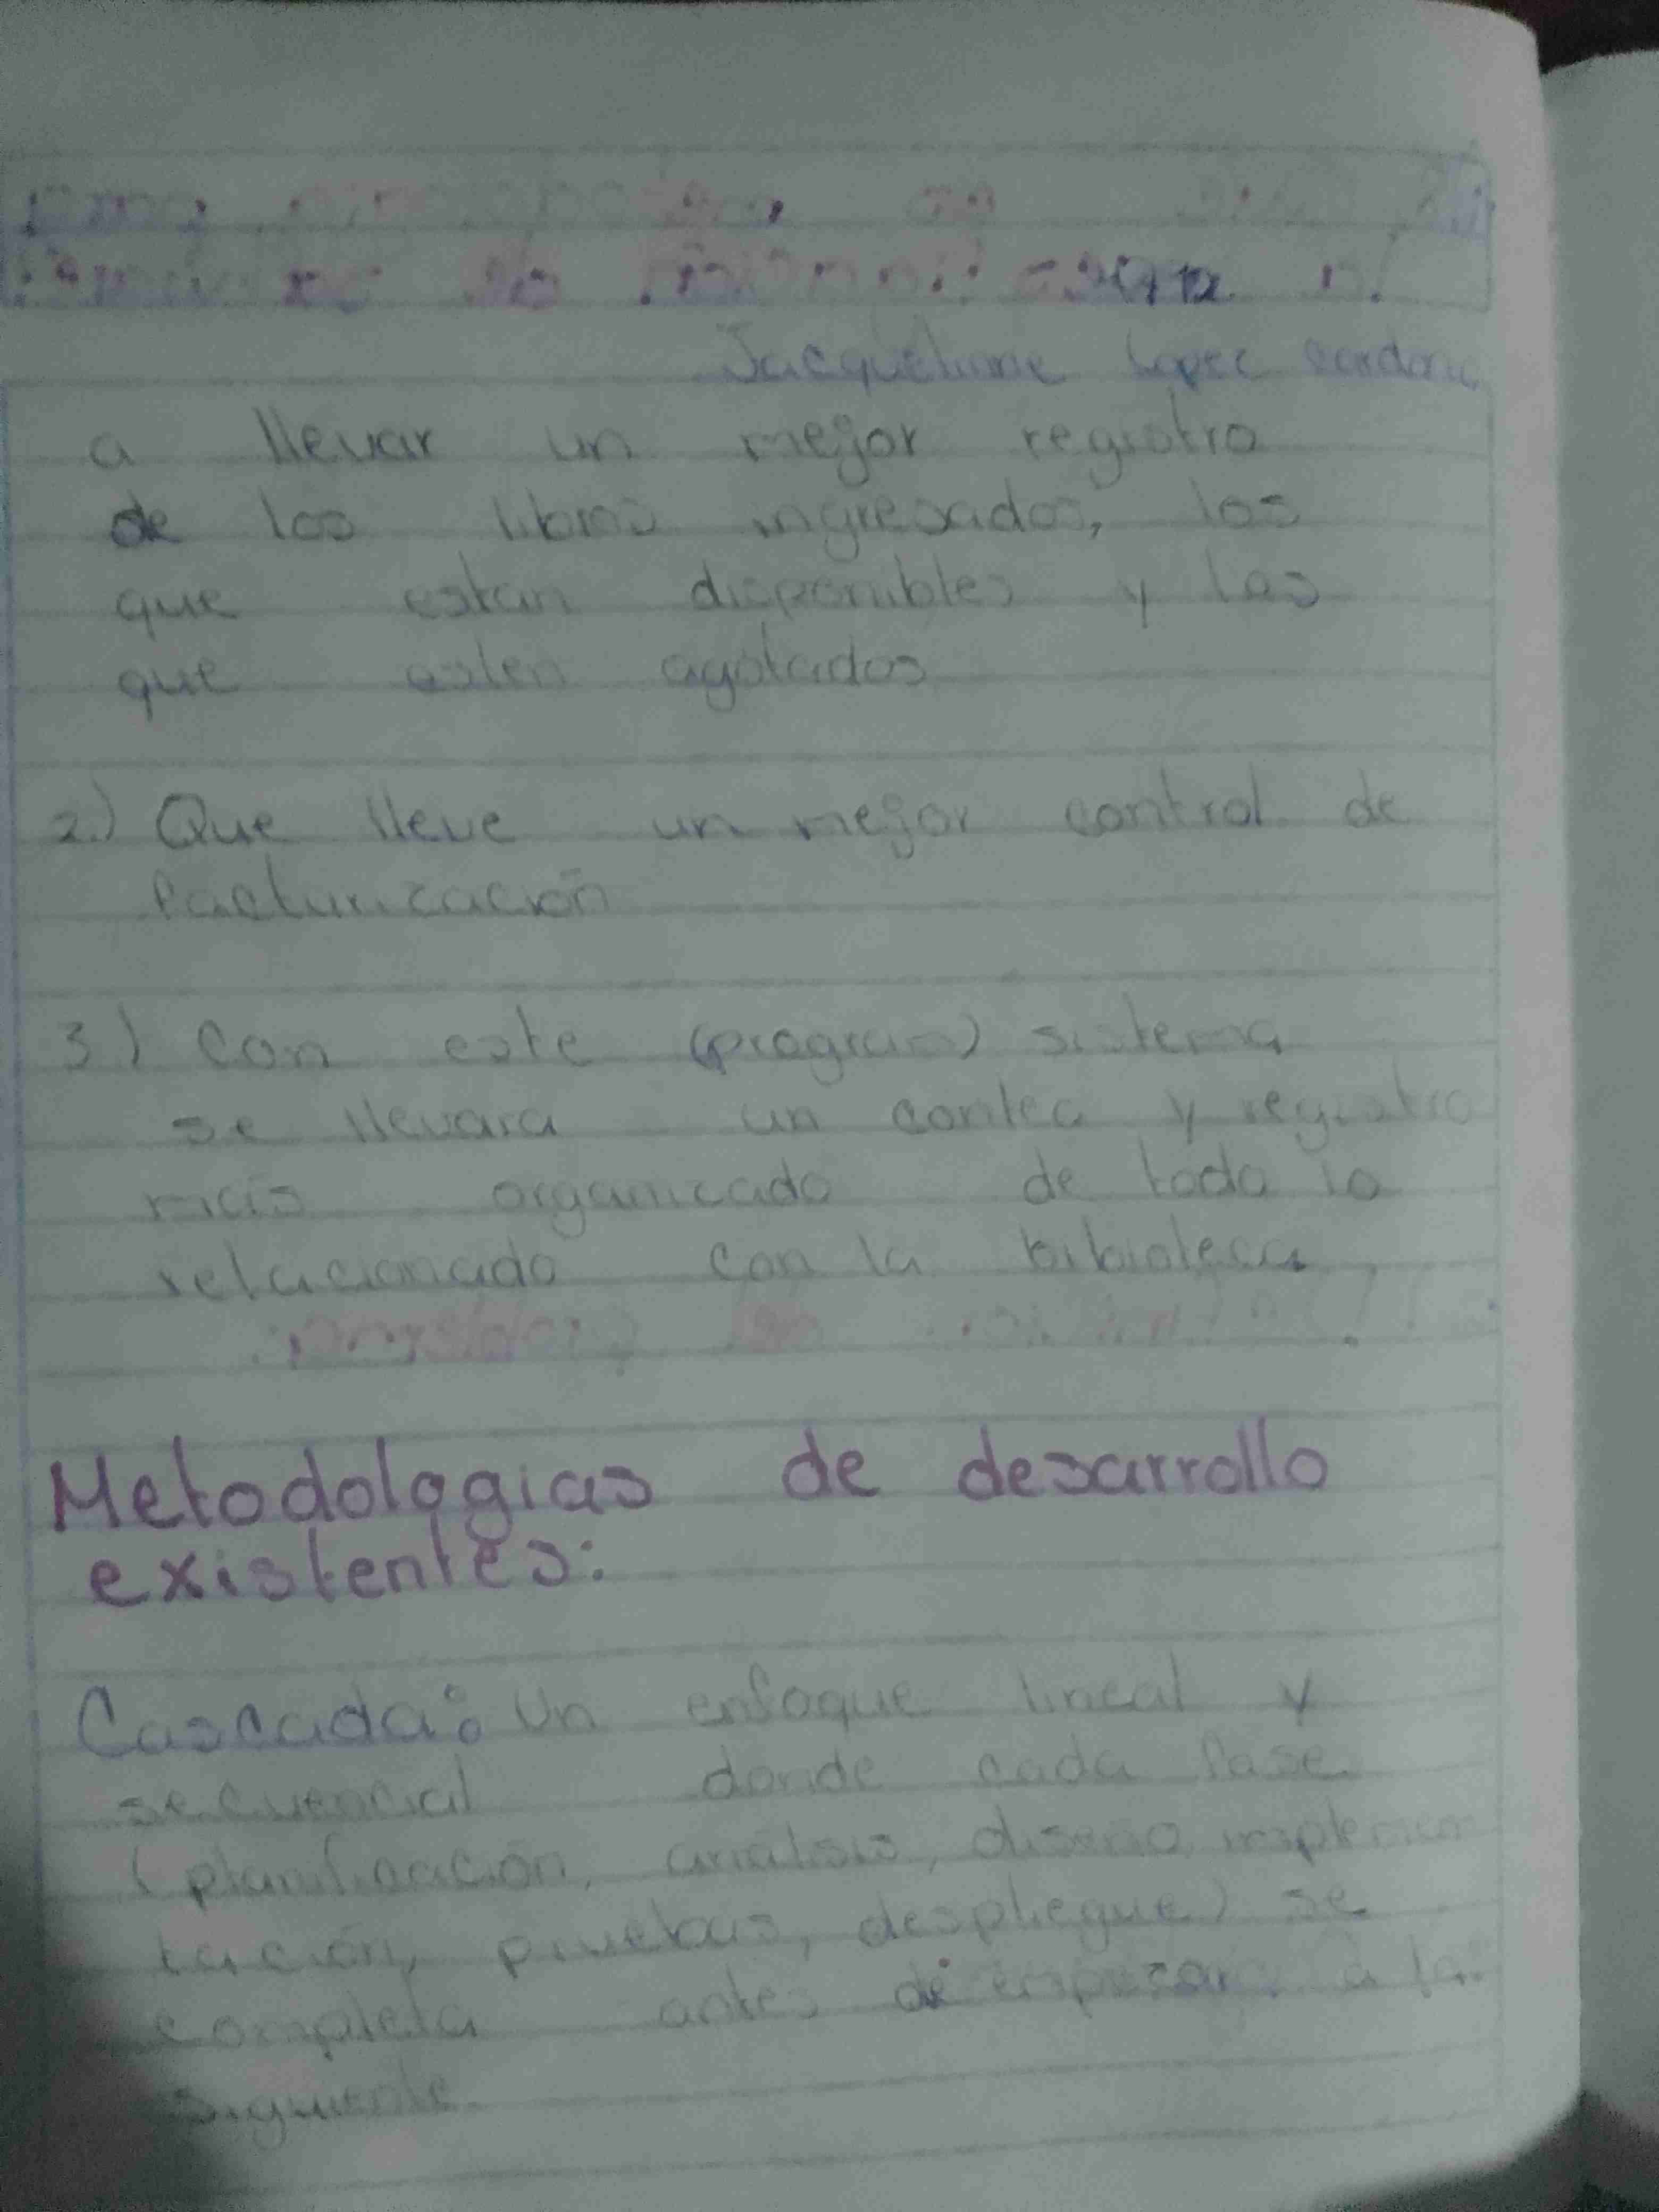 Jacqueline Lopez Cardona
a llevar un mejor registro
de los libros ingresados, los
que estan disponibles y las
que esten agotados
2.) Que lleve un mejor control de
facturización
3.) Con este (program) sistema
se llevara un conteo y registro
más organizado de todo lo
relacionado con la bibioteca
Metodologias de desarrollo
existentes:
Cascada: Un enfoque lineal y
secuencial donde cada fase
(planificación, análisis, diseño, implemen
tación, pruebas, despliegue) se
completa antes de empezar a la
siguiente.